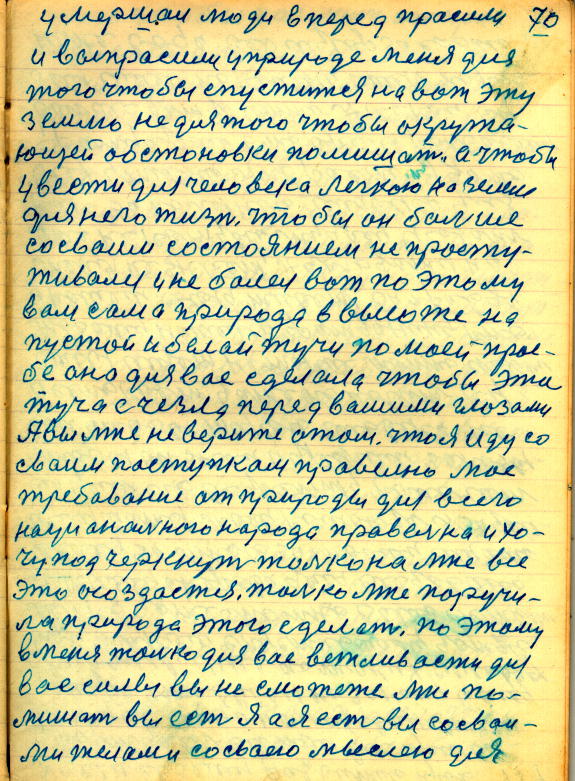 умершаи люди вперед прасили 70
и вапрасили уприроде меня для
того чтобы спустится на вот эту
землю не для того чтобы окружа-
ющей обстоновки помишат, а чтобы
ивести для человека легкою на земле
для него жизн. чтобы он больше
сосваим состоянием не просту-
живалея и не болел вот поэтому
вам сама природа в высоте на
пустой и белай тучи по моей прос-
бе она для вас сделала чтобы эта
туча счезла перед вашими глозами
А вы мне не верите отом. что я иду со
сваим паступкам правелно мое
требавание от природы для всего
националного народа правелна и хо-
чу подчеркнут толко на мне все
это сюздается. толко мне поручи-
ла природа этого сделат. поэтому
в меня толко для вас вежливасти для
вас силы вы не сможете мне по-
мишат вы ест я а я ест вы сосваи-
ми телами сосваею мыслею для